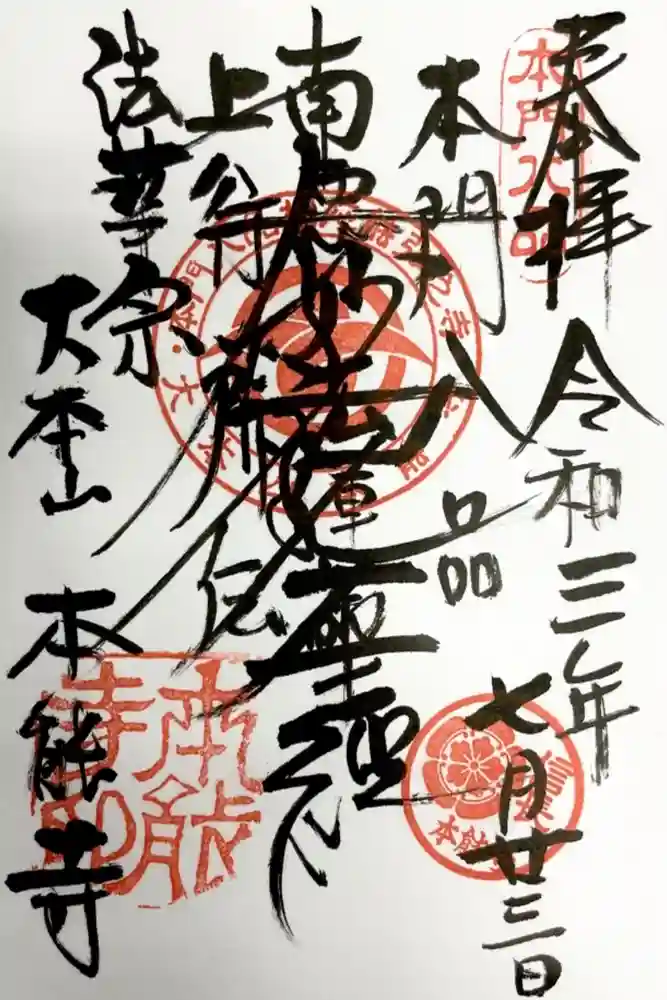 奉拝 令和三年七月廿三日
本門八品
本門八品
南無妙法蓮華経
上行所伝
法華宗
大本山 本能寺
本能寺印